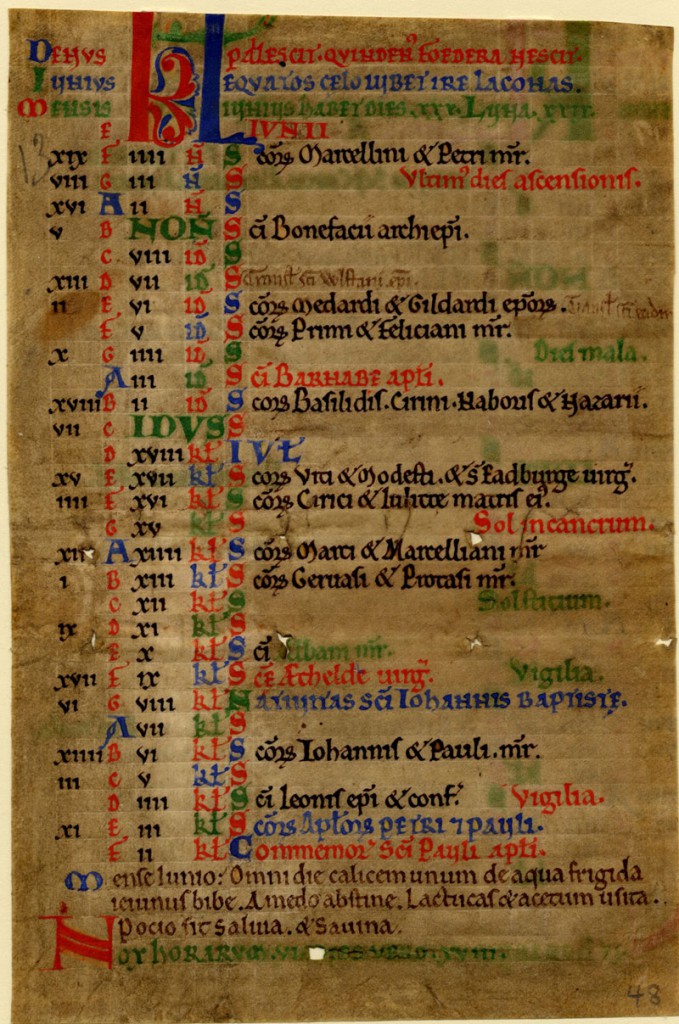 DENUS KL PALLESCIT. QUINDEN' FOEDERA NESCIT.
IUNIUS EQUATOS CELO IUBET IRE LACONAS.
MENSIS IUNIUS HABET DIES. XXX. LUNA. XXIX.
E IUNII
xix F iiii N̄ S cōrꝫ Marcellini & Petri mr̄.
viii G iii N̄ S Ultim' dies ascensionis.
xvi A ii N̄ S
v B NON S c̄i Bonefacii archiep̄i.
C viii id̄ S
xiii D vii id̄ S Transl' sc̄i Wlstani ep̄i.
ii E vi id̄ S cōrꝫ Medardi & Gildardi ep̄orꝫ. Transl' sc̄i
F v id̄ S cōrꝫ Primi & Feliciani mr̄.
x G iiii id̄ S Dies mala.
A iii id̄ S c̄i BARNABE apt̄i.
xviii B ii id̄ S cōrꝫ Basilidis. Cirini. Naboris & Nazarii.
vii C IDUS S
D xviii kł IUŁ
xv E xvii kł S cōrꝫ Viti & Modesti. & s̄. Eadburge uirḡ.
iiii F xvi kł S cōrꝫ Cirici & Iulitte matris ei'.
G xv kł S Sol in cancrum.
xii A xiiii kł S cōrꝫ Marci & Marcelliani mr̄
i B xiii kł S cōrꝫ Geruasi & Protasi mr̄.
C xii kł S Solsticium.
ix D xi kł S
E x kł S c̄i Albani mr̄.
xvii F ix kł S c̄e Æthelde uirḡ. Vigilia.
vi G viii kł NATIUITAS SC̄I IOHANNIS BAPTISTE.
A vii kł S
xiiii B vi kł S cōrꝫ Iohannis & Pauli. mr̄.
iii C v kł S
D iiii kł S c̄i Leonis ep̄i & conf'. Vigilia.
xi E iii kł S cōrꝫ Apłorꝫ PETRI ⁊ PAULI.
F ii kł Commemor' Sc̄i Pauli apt̄i.
Mense Iunio: Omni die calicem unum de aqua frigida
ieiunus bibe. A medo abstine. Lactucas & acetum usita.
Pocio sit Saluia. & Sauina.
NOX HORARUM. VI
48